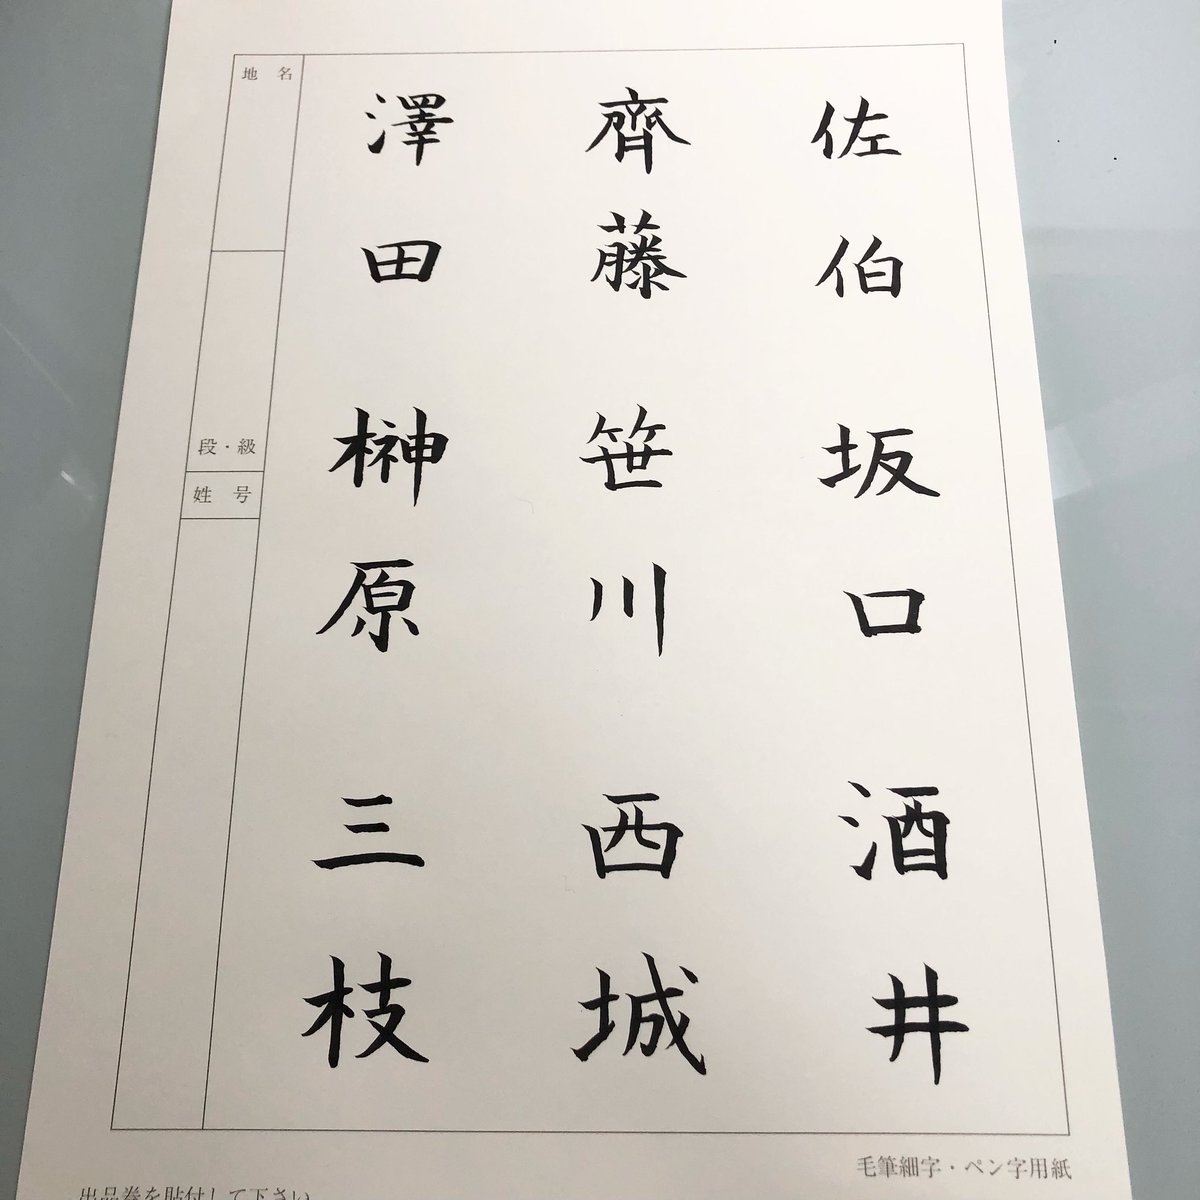 佐伯 坂口 酒井
齊藤 笹川 西城
澤田 榊原 三枝
地名
段・級
姓号
毛筆細字・ペン字用紙
出品券を貼付して下さい